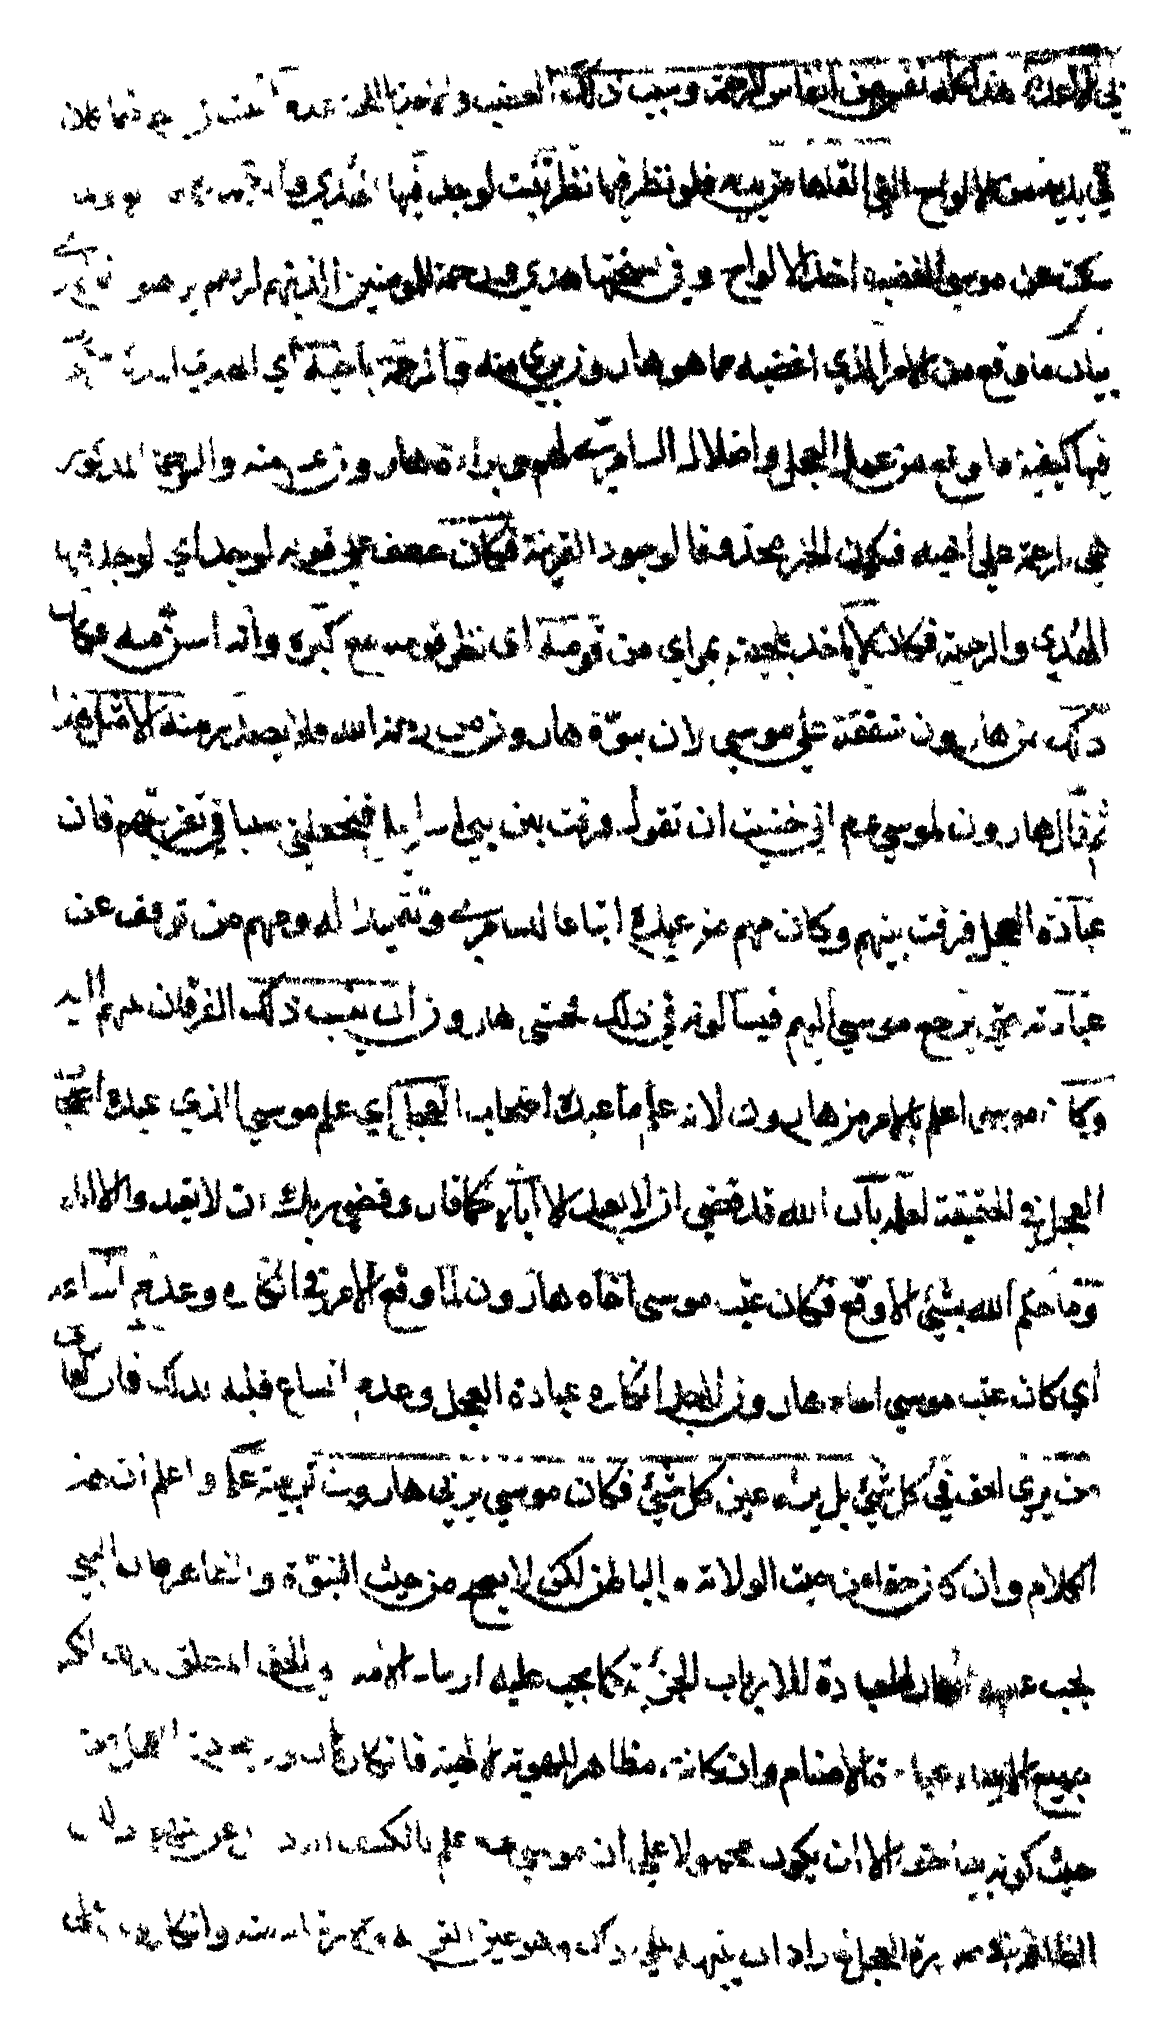 في الاعداء هذا كله نفس من انفاس الرحمة وسبب ذلك الغضب و عدم فيما كان
في يديه من الالواح التي القاها من يديه فلو نظر فيها نظر تثبت لوجد فيها الهدي والرحمة
سكت عن موسي الغضب اخذ الالواح وفي نسختها هدي ورحمة للمومنين الذينهم لربهم يرهبون
بيان ما وقع من الامر الذي اغضبه مما هو هارون بري منه والرحمة باخيه أي
فيها كيفية ما وقع من عمل العجل واضلال السامري لهم وبراءة هارون منه والرحمة المذكور
هي الرحمة علي أخيه فيكون الخبر محذوفا لوجود القرينة فكان عطف علي قوله لوجد اي لوجد فيها
الهدي والرحمة فكان لا ياخذ بلحيته بمراي من قومه اي نظر قومه مع كبره وأنه اسن منه فكان
ذلك من هارون شفقة علي موسي لان نبوّة هارون من رحمة الله فلا يصدر منه الا مثل هذا
ثم قال هارون لموسي عم اني خشيت ان تقول فرقت بين بني اسرايل فتجعلني سببا في تفريقهم فان
عبادة العجل فرقت بينهم وكان منهم من عبده اتباعا للسامري وتقليدا له ومنهم من توقف عن
عبادته حتي يرجع موسي اليهم فيسألونه في ذلك فخشي هارون أن ينسب ذلك الفرقان بينهم اليه
وكان موسي اعلم بالامر من هارون لانه علم ما عبده اصحاب العجل أي علم موسي الذي عبده اصحاب
العجل في الحقيقة لعلمه بأن الله قد قضي ان لا يعبد الا اياه كما قال وقضي ربك ان لا تعبدوا الا اياه
وما حكم الله بشيء الا وقع فكان عتب موسي اخاه هارون لما وقع الامر في انكاره وعدم اتساعه
اي كان عتب موسي اخاه هارون لاجل انكاره عبادة العجل وعدم اتساع قلبه لذلك فان العارف
من يري الحق في كل شيء بل يراه عين كل شيء فكان موسي يربي هارون تربية علم واعلم ان هذا
الكلام وان كان حقا من حيث الولاية والباطن لكن لا يصح من حيث النبوّة والظاهر فان النبي
يجب عليه انكار العبادة للارباب الجزئية كما يجب عليه ارشاد الامة الي الحق المطلق لذلك انكر
جميع الانبياء عبادة الاصنام وان كانت مظاهر للهوية الالهية فانكار هارون عبادة العجل من
حيث كونه نبيا حق الا ان يكون محمولا علي أن موسي عم علم بالكشف
الظاهر في صورة العجل فاراد ان ينبهه علي ذلك وهو عين التربية والارشاد منه وانكاره